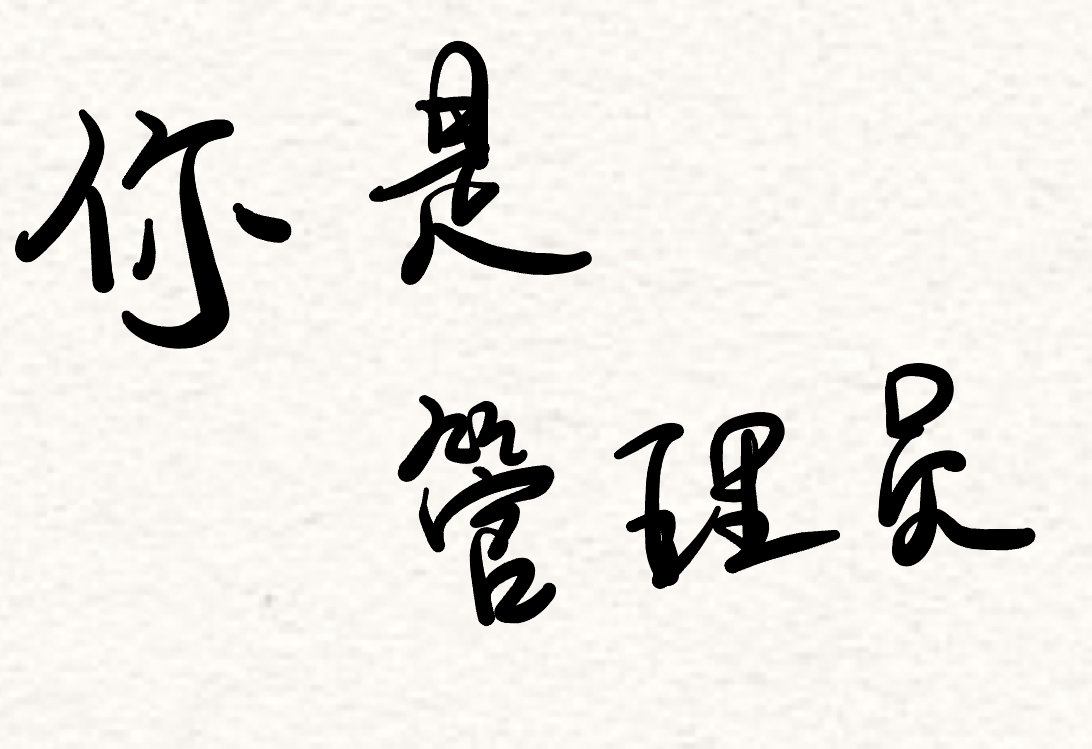 你是
管理员